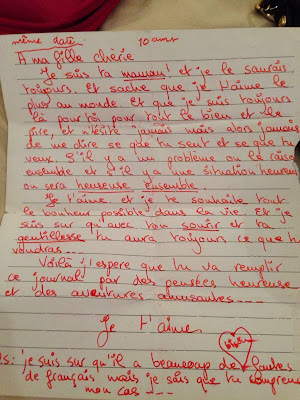 même date 10 ans
À ma fille chérie
Je suis ta maman! et je le saurais
toujours. Et sache que je t'aime le
plus au monde. Et que je suis toujours
là pour toi pour tout le bien et le
pire, et n'ésite jamais mais alors jamais
de me dire se que tu sent et se que tu
veux. S'il y a un problème on le
ensemble et s'il y a une situation heureuse
on sera heureuse ensemble.
Je t'aime et je te souhaite tout
le bonheur possible dans la vie. Et je
suis sur qu'avec ton sourir et ta
gentillesse tu aura toujours ce que
voudras....
Voilà j'espère que tu va remplir
ce journal par des pensées heureuse
et des aventures amusantes....
Je t'aime
bisou
PS: je suis sur qu'il a beaucoup de fautes
de français mais je sais que tu
mon cas ---